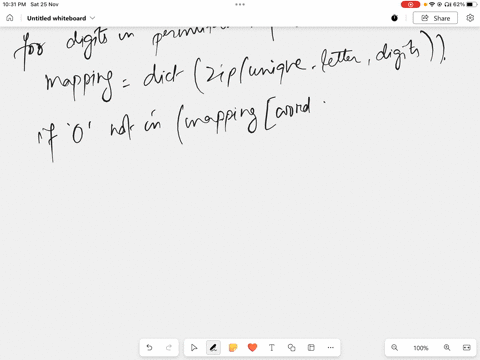 10:31 PM Sat 25 Nov
62%
Untitled whiteboard
Share
for digits in
mapping = dict (zip(unique-letter, digits)).
if '0' not in (mapping [word
T
100%